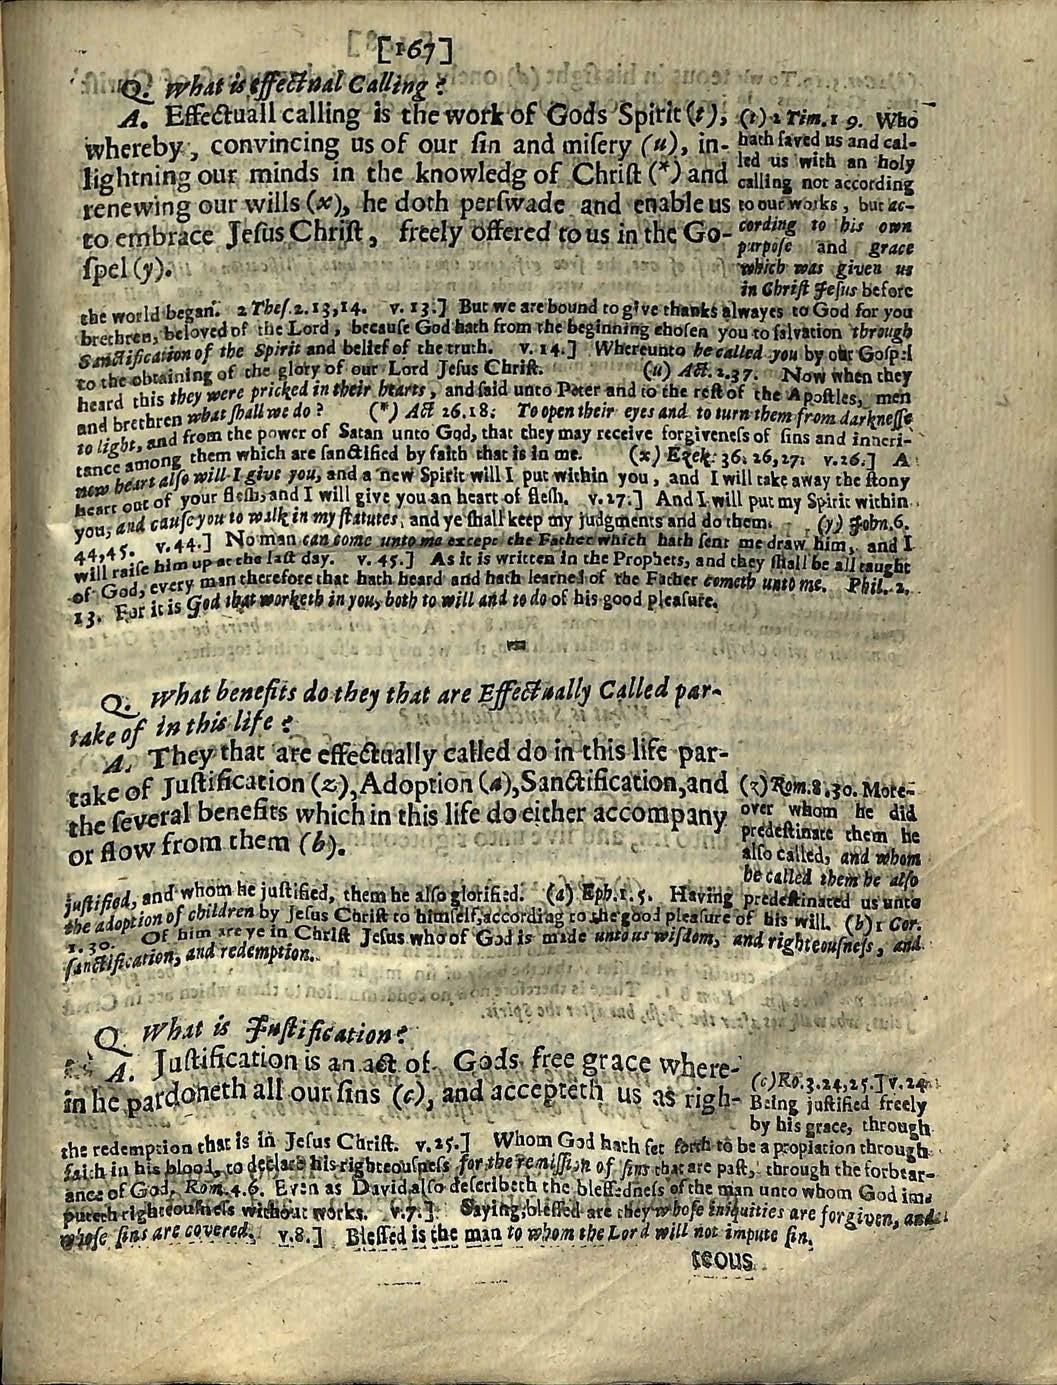 [167]
Q. What is effectual Calling?
A. Effectuall calling is the work of Gods Spirit (t),
whereby, convincing us of our ſin and miſery (u), in-
lightning our minds in the knowledg of Chriſt (*) and
renewing our wills (x), he doth perſwade and enable us
to embrace Jeſus Chriſt, freely offered to us in the Go-
ſpel (y).
(t) 2 Tim. 1 9. Who
hath ſaved us and cal-
led us with an holy
calling not according
to our works, but ac-
cording to his own
purpoſe and grace
which was given us
in Chriſt Jeſus before
the world began. 2 Theſ. 2. 13, 14. v. 13.] But we are bound to give thanks alwayes to God for you
brethren, beloved of the Lord, becauſe God hath from the beginning choſen you to ſalvation through
Sanctification of the Spirit and belief of the truth. v. 14.] Whereunto he called you by our Goſpel
to the obtaining of the glory of our Lord Jeſus Chriſt. (u) Act. 2.37. Now when they
heard this they were pricked in their hearts, and ſaid unto Peter and to the reſt of the Apoſtles, men
and brethren what ſhall we do? (*) Act 26.18: To open their eyes and to turn them from darkneſſe
to light, and from the power of Satan unto God, that they may receive forgiveneſs of ſins and inheri-
tance among them which are ſanctified by faith that is in me. (x) Ezek. 36. 26, 27. v.26.] A
new heart alſo will I give you, and a new Spirit will I put within you, and I will take away the ſtony
heart out of your fleſh, and I will give you an heart of fleſh. v. 27.] And I will put my Spirit within
you, and cauſe you to walk in my ſtatutes, and ye ſhall keep my judgments and do them. (y) John. 6.
44, 45. v. 44.] No man can come unto me except the Father which hath ſent me draw him, and I
will raiſe him up at the laſt day. v. 45.] As it is written in the Prophets, and they ſhall be all taught
of God, every man therefore that hath heard and hath learned of the Father cometh unto me. Phil. 2.
13. For it is God that worketh in you, both to will and to do of his good pleaſure.
Q. What benefits do they that are Effectually Called par-
take of in this life?
A. They that are effectually called do in this life par-
take of Juſtification (z), Adoption (a), Sanctification, and
the ſeveral benefits which in this life do either accompany
or flow from them (b).
(z) Rom. 8. 30. More-
over whom he did
predeſtinate them he
alſo called, and whom
he called them he alſo
juſtified, and whom he juſtified, them he alſo glorified. (a) Eph. 1. 5. Having predeſtinated us unto
the adoption of children by Jeſus Chriſt to himſelf, according to the good pleaſure of his will. (b) 1 Cor.
1. 30. Of him are ye in Chriſt Jeſus who of God is made unto us wiſdom, and righteouſneſs, and
ſanctification, and redemption.
Q. What is Juſtification?
A. Juſtification is an act of Gods free grace where-
in he pardoneth all our ſins (c), and accepteth us as righ-
(c) Ro. 3.24, 25.] v. 24.
Being juſtified freely
by his grace, through
the redemption that is in Jeſus Chriſt. v. 25.] Whom God hath ſet forth to be a propiation through
faith in his blood, to declare his righteouſneſs for the remiſſion of ſins that are paſt, through the forbear-
ance of God, Rom. 4. 6. Even as David alſo deſcribeth the bleſſedneſs of the man unto whom God im-
puteth righteouſneſs without works. v. 7.] Saying, bleſſed are they whoſe iniquities are forgiven, and
whoſe ſins are covered. v. 8.] Bleſſed is the man to whom the Lord will not impute ſin.
teous